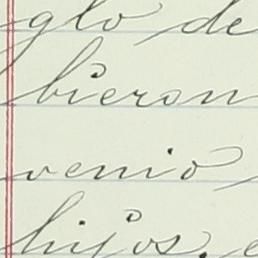 glo de
bieron
venio
hijos. e